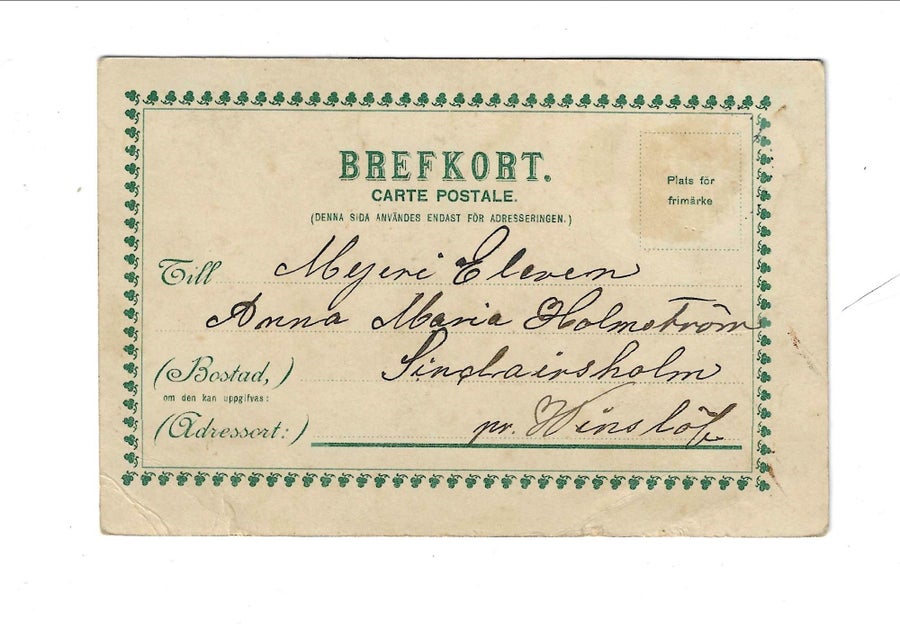 BREFKORT.
CARTE POSTALE.
(DENNA SIDA ANVÄNDES ENDAST FÖR ADRESSERINGEN.)
Plats för
frimärke
Till Mejeri Eleven
Anna Maria Holmström
(Bostad,) Sinclairsholm
om den kan uppgifvas:
(Adressort:) pr. Winslöf